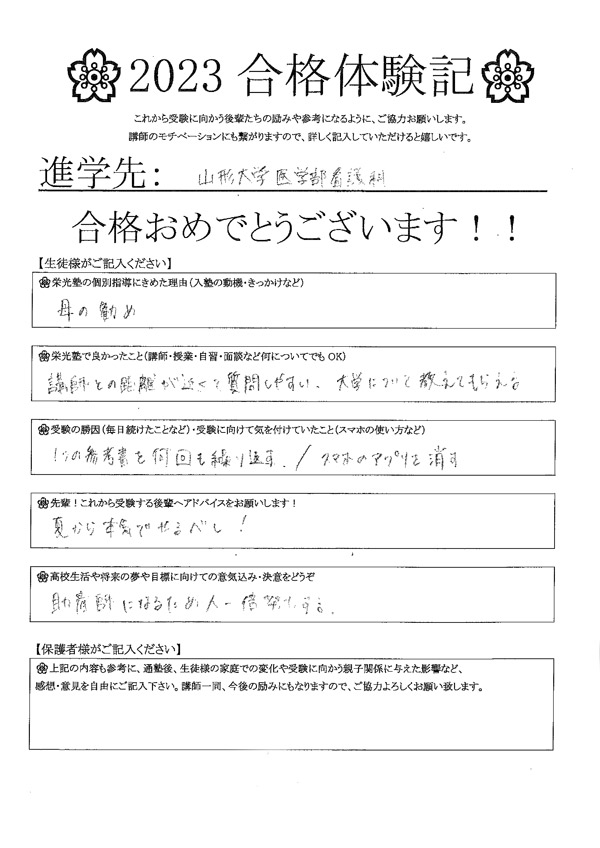 2023 合格体験記
これから受験に向かう後輩たちの励みや参考になるように、ご協力お願いします。
講師のモチベーションにも繋がりますので、詳しく記入していただけると嬉しいです。
進学先： 山形大学医学部看護科
合格おめでとうございます！！
【生徒様がご記入ください】
栄光塾の個別指導にきめた理由（入塾の動機・きっかけなど）
母の勧め
栄光塾で良かったこと（講師・授業・自習・面談など何についてでもOK）
講師との距離が近くて質問しやすい、大学について教えてもらえる
受験の勝因（毎日続けたことなど）・受験に向けて気を付けていたこと（スマホの使い方など）
1つの参考書を何回も繰り返す。／スマホのアプリを消す
先輩！これから受験する後輩へアドバイスをお願いします！
夏から本気でやるべし！
高校生活や将来の夢や目標に向けての意気込み・決意をどうぞ
助産師になるため人一倍努力する。
【保護者様がご記入ください】
上記の内容も参考に、通塾後、生徒様の家庭での変化や受験に向かう親子関係に与えた影響など、
感想・意見を自由にご記入下さい。講師一同、今後の励みにもなりますので、ご協力よろしくお願い致します。